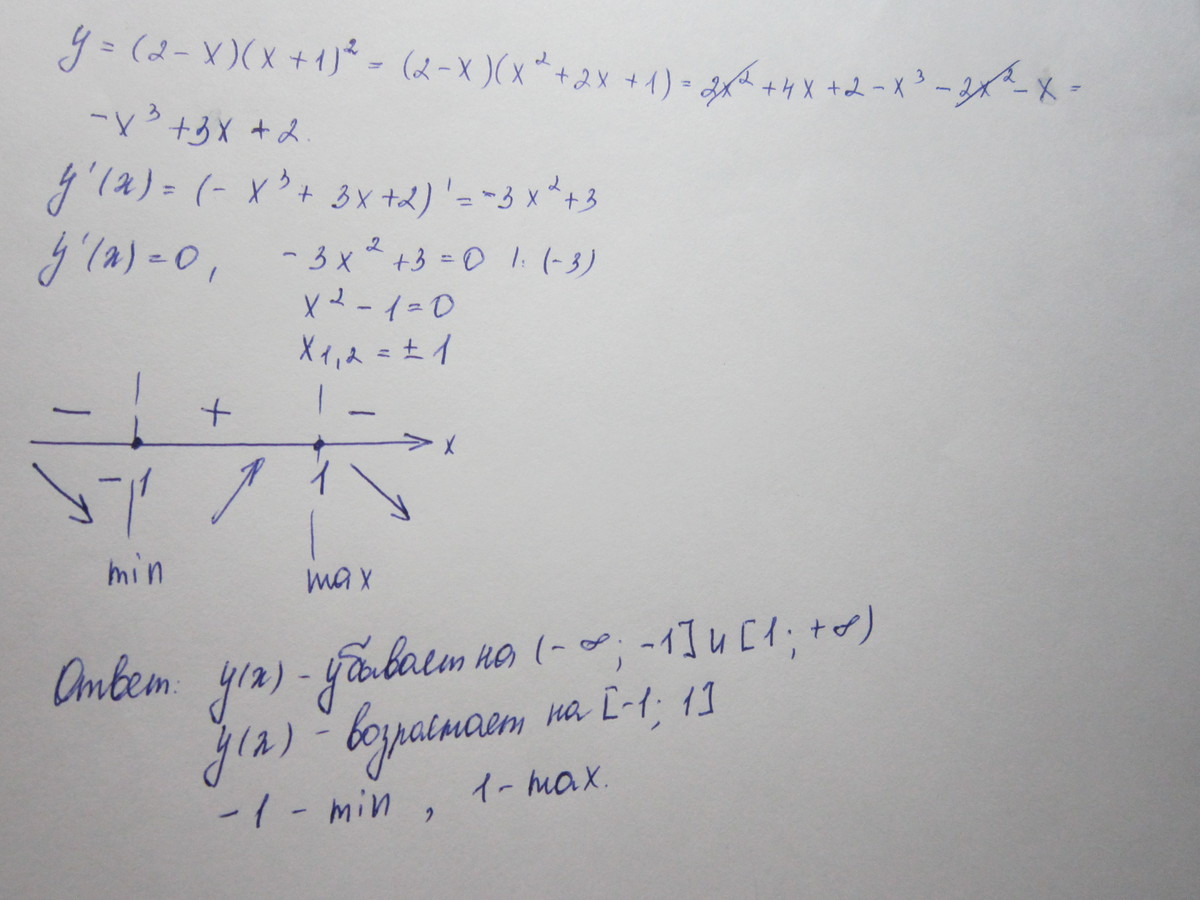 y = (2 - x)(x + 1)² = (2 - x)(x² + 2x + 1) = 2x² + 4x + 2 - x³ - 2x² - x =
- x³ + 3x + 2.
y'(x) = (- x³ + 3x + 2)' = -3x² + 3
y'(x) = 0, - 3x² + 3 = 0 |: (-3)
x² - 1 = 0
x₁,₂ = ± 1
− + −
x
-1 1
min max
Ответ: y(x) - убывает на (-∞; -1] и [1; +∞)
y(x) - возрастает на [-1; 1]
-1 - min, 1 - max.